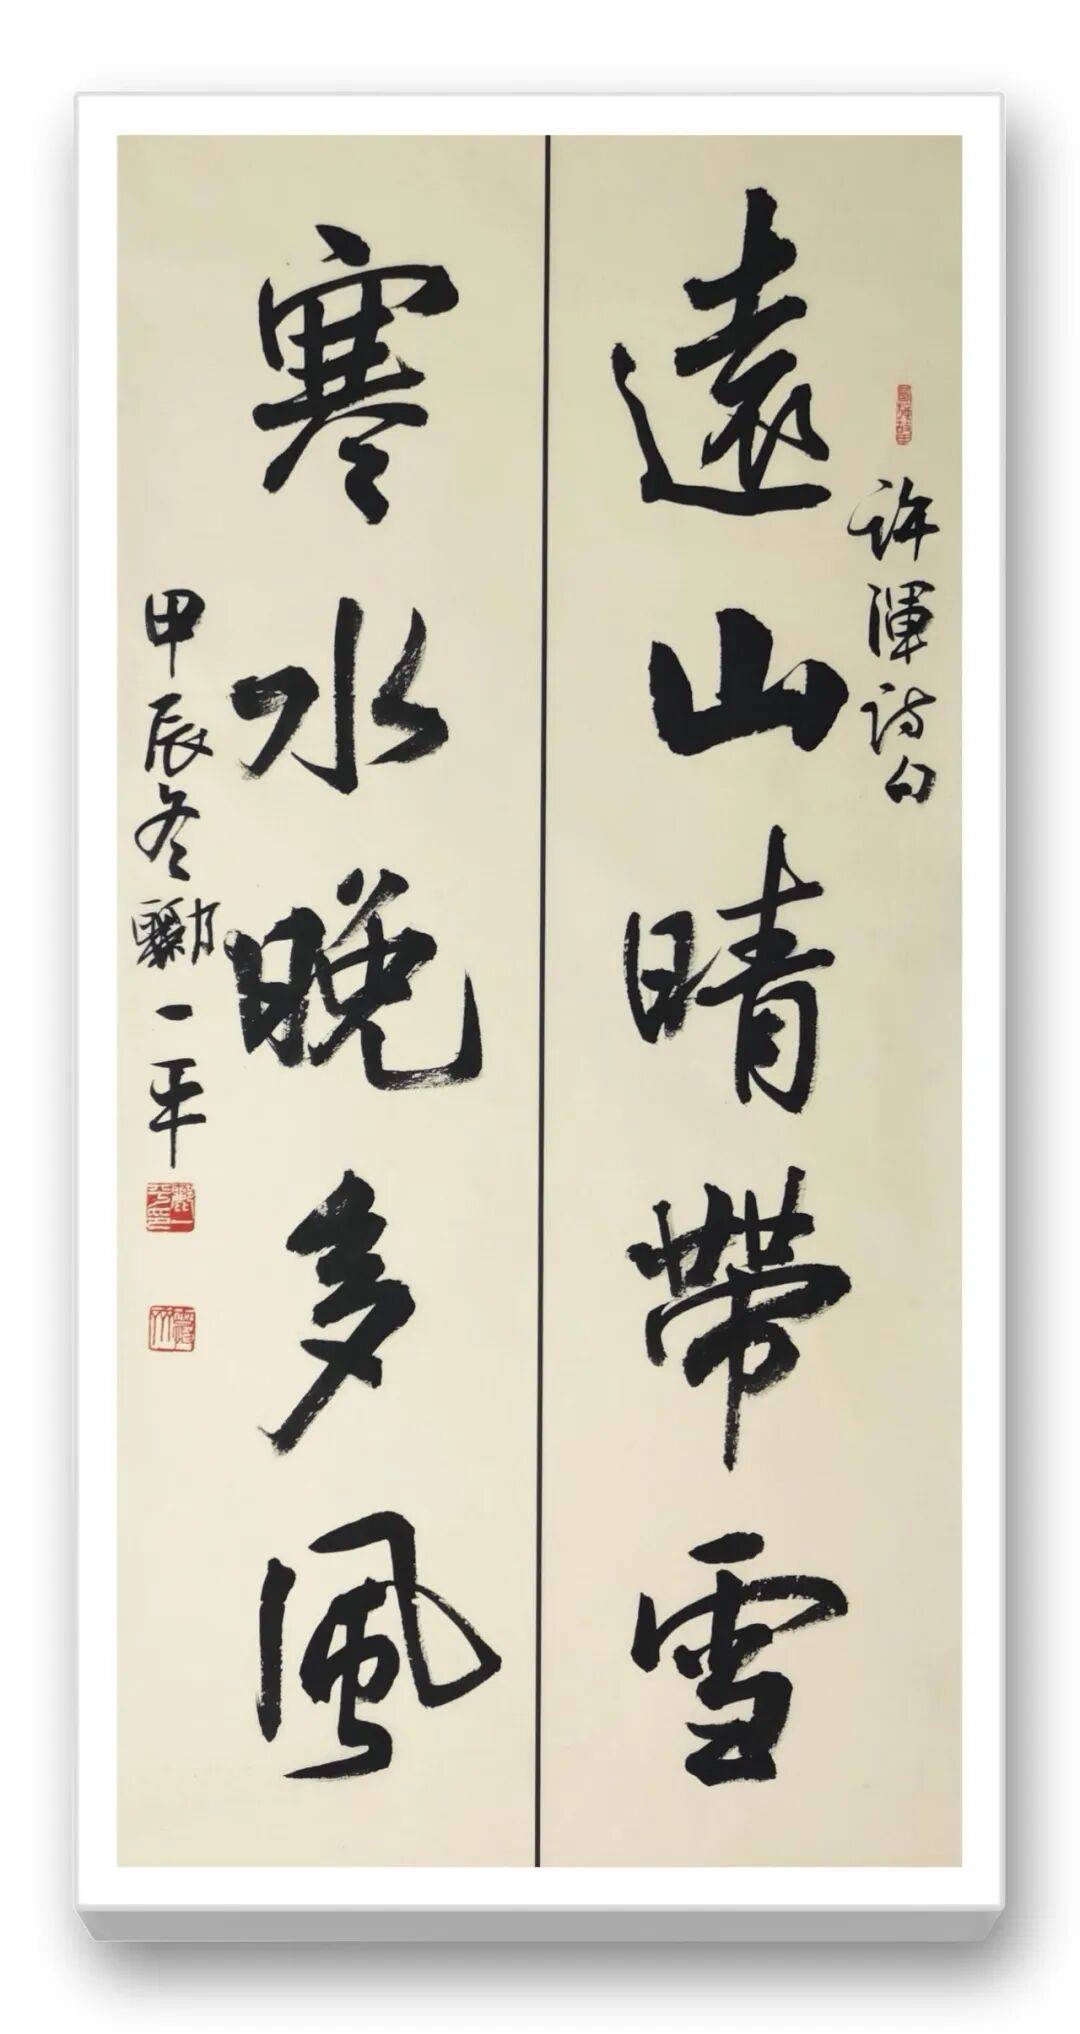 許渾詩句
遠山晴帶雪
寒水晚多風
甲辰冬 一平